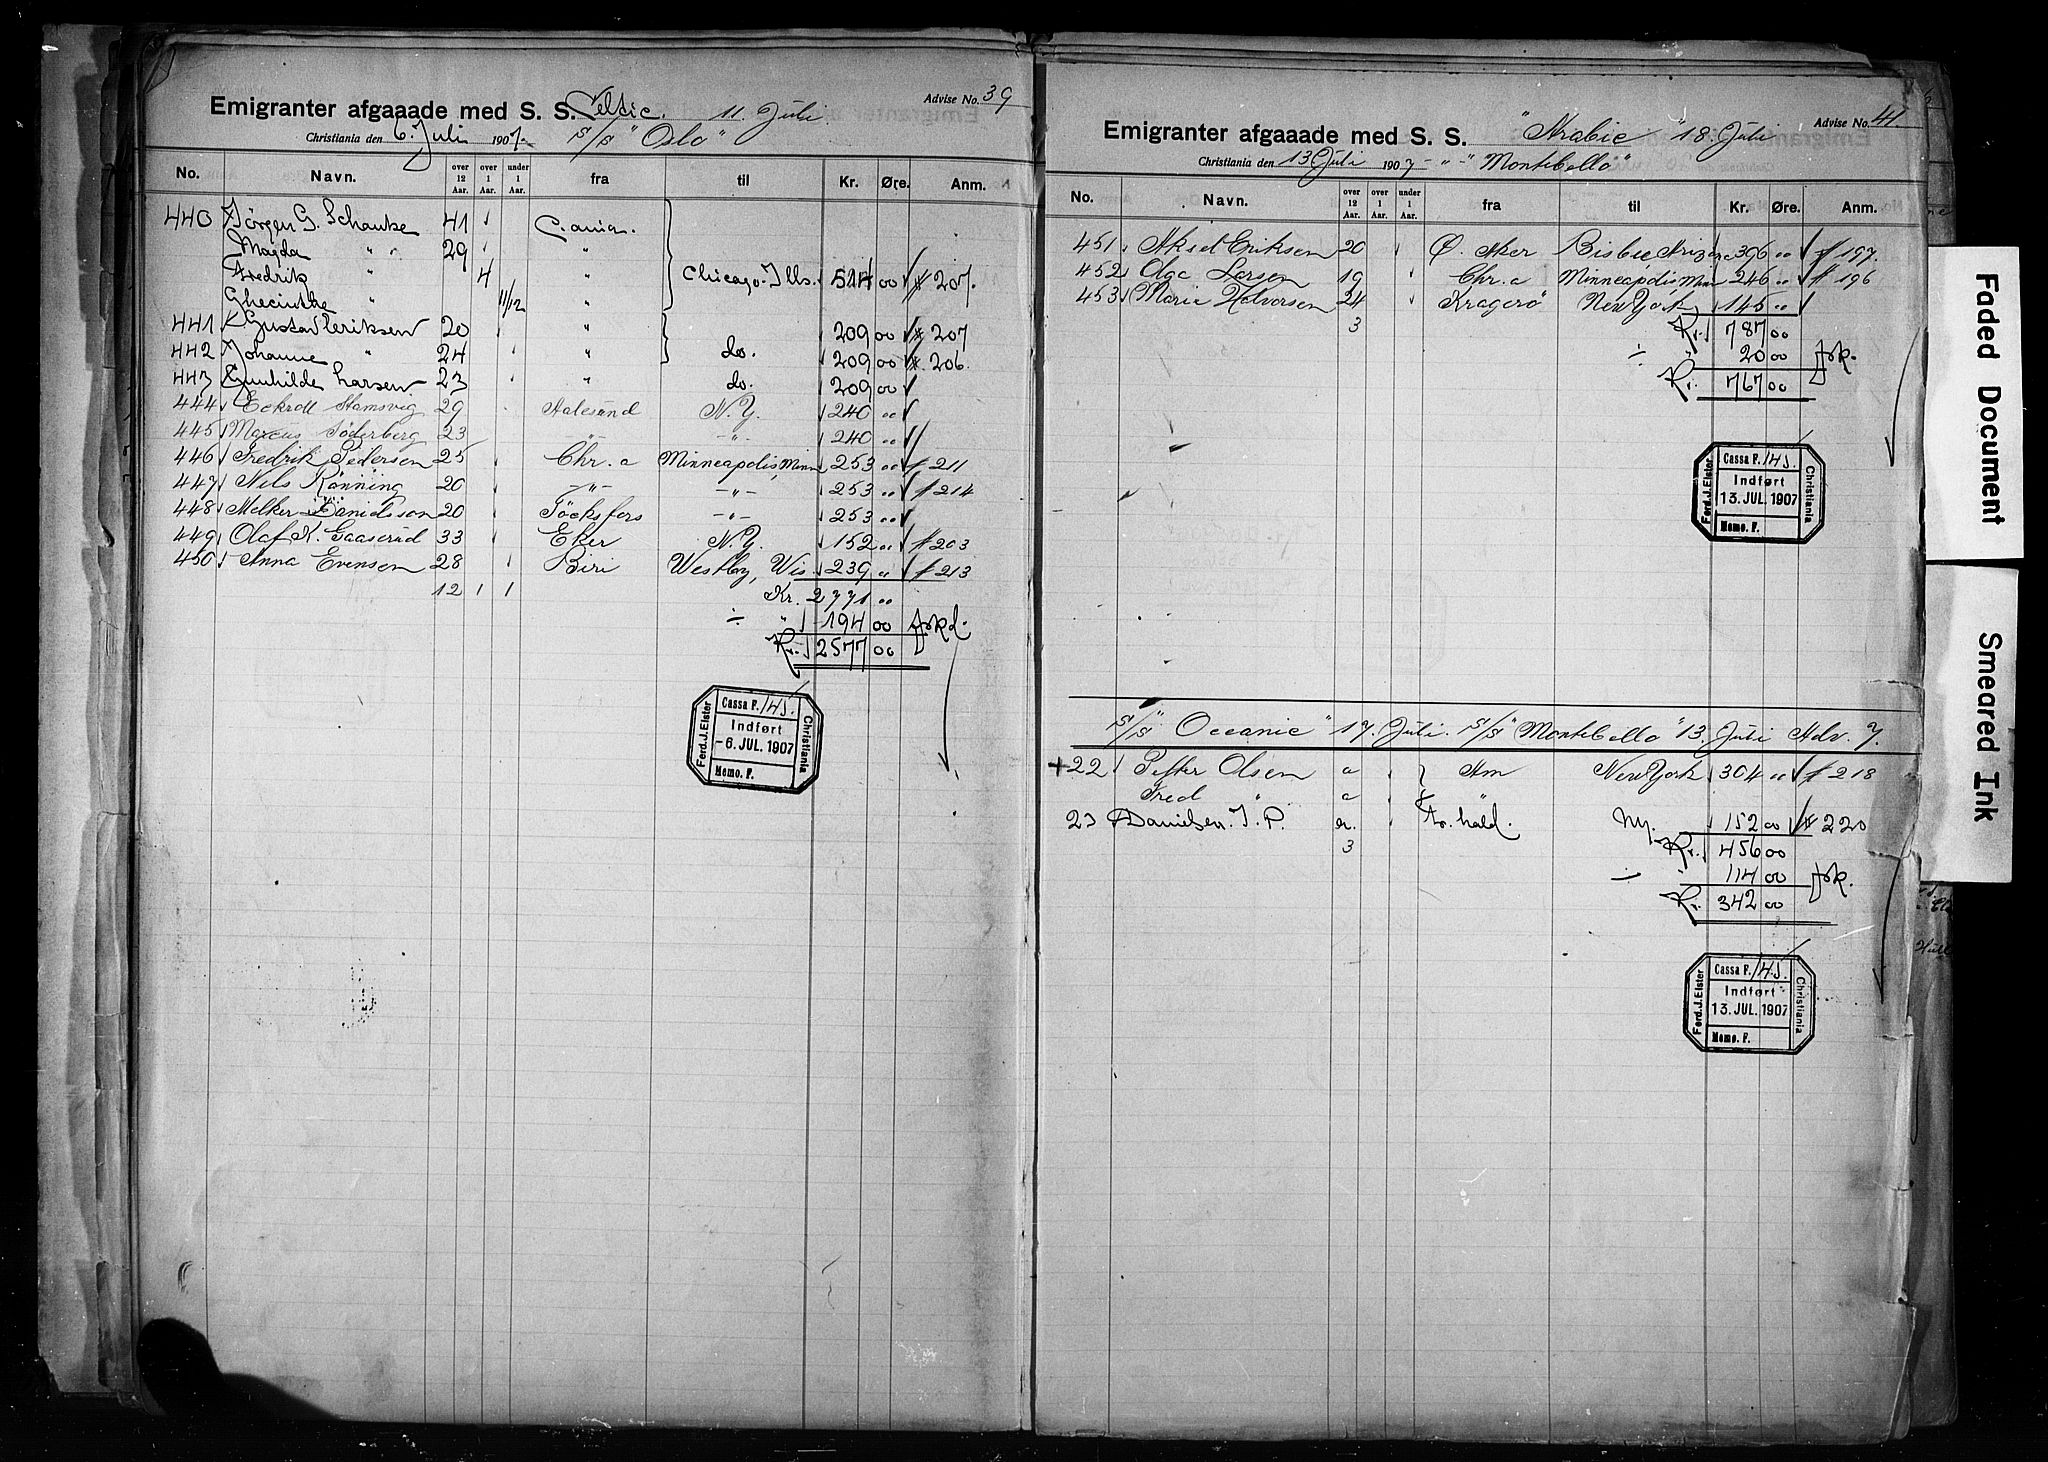 Emigranter afgaaade med S. S. Celtic. 11. Juli Advise No. 39
Christiania den 6. Juli 1907. S/S "Oslo"
No. Navn. over 12 Aar. over 1 Aar. under 1 Aar. fra til Kr. Øre. Anm.
440 Jörgen G. Schanke 41 C.ania.
Magda " 29 "
Fredrik " 4 " Chicago. Ills. 514 00 # 207.
" 11/12 "
441 Gustav Eriksen 20 " 209 00 # 207
442 Johanne " 24 " do. 209 00 # 206.
443 Gunhilde Larsen 23 " do. 209 00
444 Stamsvig 29 Aalesund N.Y. 240 "
445 Marcus Söderberg 23 -"- -"- 240 "
446 Fredrik Pedersen 25 Chr.a Minneapolis, Minn 253 " # 211
447 Nils Rönning 20 -"- -"- 253 " # 214
448 Melker Danielsson 20 Töcksfors -"- 253 "
449 Olaf K. Gaaserud 33 Eker N.Y. 152 " # 203
450 Anna Evensen 28 Biri Westby, Wis. 239 " # 213
12 1 1 Kr. 2771 "
÷ " 194 00 frkd.
Kr. 2577 00
Ferd. J. Elster
Cassa F. 145.
Indført
- 6. JUL. 1907
Memo. F.
Christiania
Emigranter afgaaade med S. S. "Arabic" 18. Juli Advise No. 41.
Christiania den 13 Juli 1907 - " - "Montebello"
No. Navn. over 12 Aar. over 1 Aar. under 1 Aar. fra til Kr. Øre. Anm.
451 Aksel Eriksen 20 Ø. Aker Bisbee Arizona 396 " # 197.
452 Olga Larsen 19 Chr.a Minneapolis Minn 246 " # 196
453 Marie Halvorsen 24 Kragerö New York 145 "
3 Kr. 787 00
÷ " 20 00 frk.
Kr. 767 00
Ferd. J. Elster
Cassa F. 145.
Indført
13. JUL. 1907
Memo. F.
Christiania
S/S "Oceanic" 17. Juli. S/S "Montebello" 13. Juli Adv. 7.
+22 Petter Olsen a Am New York 304 " # 218
Fred " a "
23 Danielsen. J. P. a. Fr. hald. Ny. 152 00 # 220
3 Kr. 456 00
÷ " 114 00 frk.
Kr. 342 00
Ferd. J. Elster
Cassa F. 145.
Indført
13. JUL. 1907
Memo. F.
Christiania
Faded Document
Smeared Ink